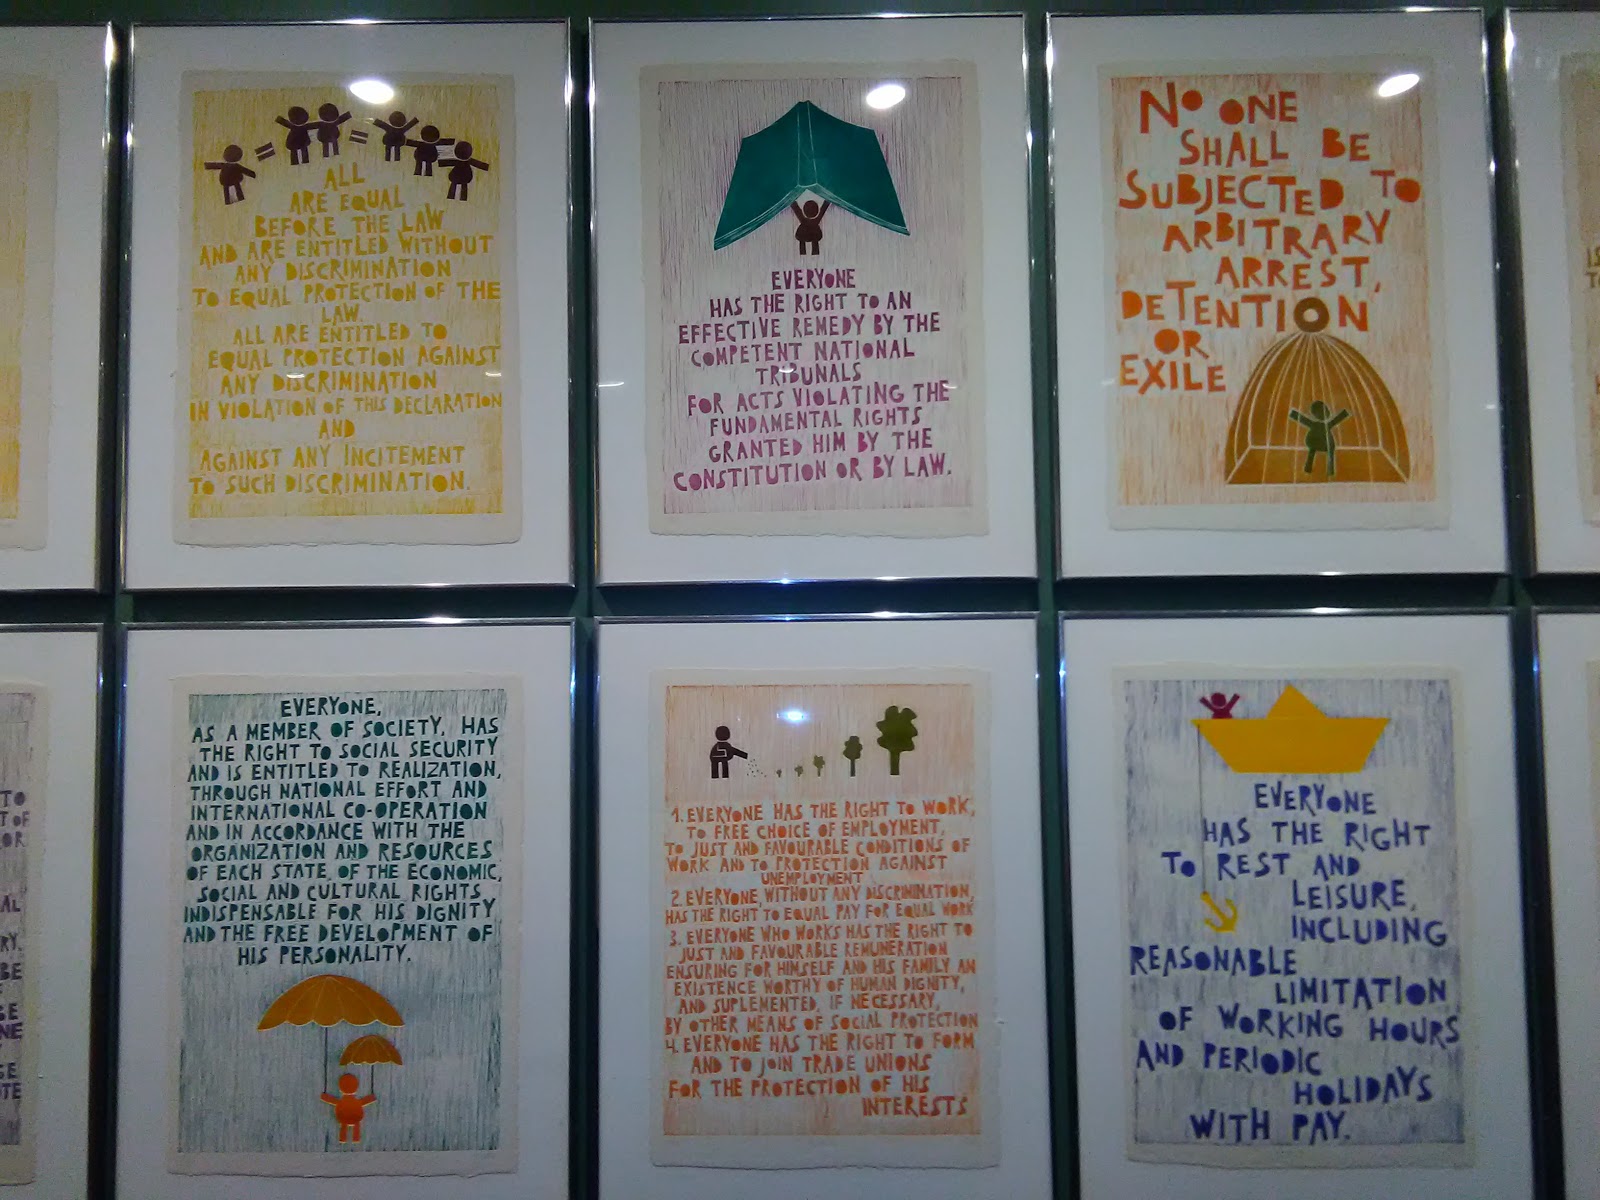 ALL
ARE EQUAL
BEFORE THE LAW
AND ARE ENTITLED WITHOUT
ANY DISCRIMINATION
TO EQUAL PROTECTION OF THE
LAW.
ALL ARE ENTITLED TO
EQUAL PROTECTION AGAINST
ANY DISCRIMINATION
IN VIOLATION OF THIS DECLARATION
AND
AGAINST ANY INCITEMENT
TO SUCH DISCRIMINATION.
EVERYONE
HAS THE RIGHT TO AN
EFFECTIVE REMEDY BY THE
COMPETENT NATIONAL
TRIBUNALS
FOR ACTS VIOLATING THE
FUNDAMENTAL RIGHTS
GRANTED HIM BY THE
CONSTITUTION OR BY LAW.
NO ONE
SHALL BE
SUBJECTED TO
ARBITRARY
ARREST,
DETENTION
OR
EXILE
EVERYONE,
AS A MEMBER OF SOCIETY, HAS
THE RIGHT TO SOCIAL SECURITY
AND IS ENTITLED TO REALIZATION,
THROUGH NATIONAL EFFORT AND
INTERNATIONAL CO-OPERATION
AND IN ACCORDANCE WITH THE
ORGANIZATION AND RESOURCES
OF EACH STATE, OF THE ECONOMIC,
SOCIAL AND CULTURAL RIGHTS
INDISPENSABLE FOR HIS DIGNITY
AND THE FREE DEVELOPMENT OF
HIS PERSONALITY.
1. EVERYONE HAS THE RIGHT TO WORK,
TO FREE CHOICE OF EMPLOYMENT,
TO JUST AND FAVOURABLE CONDITIONS OF
WORK AND TO PROTECTION AGAINST
UNEMPLOYMENT
2. EVERYONE, WITHOUT ANY DISCRIMINATION,
HAS THE RIGHT TO EQUAL PAY FOR EQUAL WORK
3. EVERYONE WHO WORKS HAS THE RIGHT TO
JUST AND FAVOURABLE REMUNERATION
ENSURING FOR HIMSELF AND HIS FAMILY AN
EXISTENCE WORTHY OF HUMAN DIGNITY,
AND SUPLEMENTED, IF NECESSARY,
BY OTHER MEANS OF SOCIAL PROTECTION
4. EVERYONE HAS THE RIGHT TO FORM
AND TO JOIN TRADE UNIONS
FOR THE PROTECTION OF HIS
INTERESTS
EVERYONE
HAS THE RIGHT
TO REST AND
LEISURE,
INCLUDING
REASONABLE
LIMITATION
OF WORKING HOURS
AND PERIODIC
HOLIDAYS
WITH PAY.